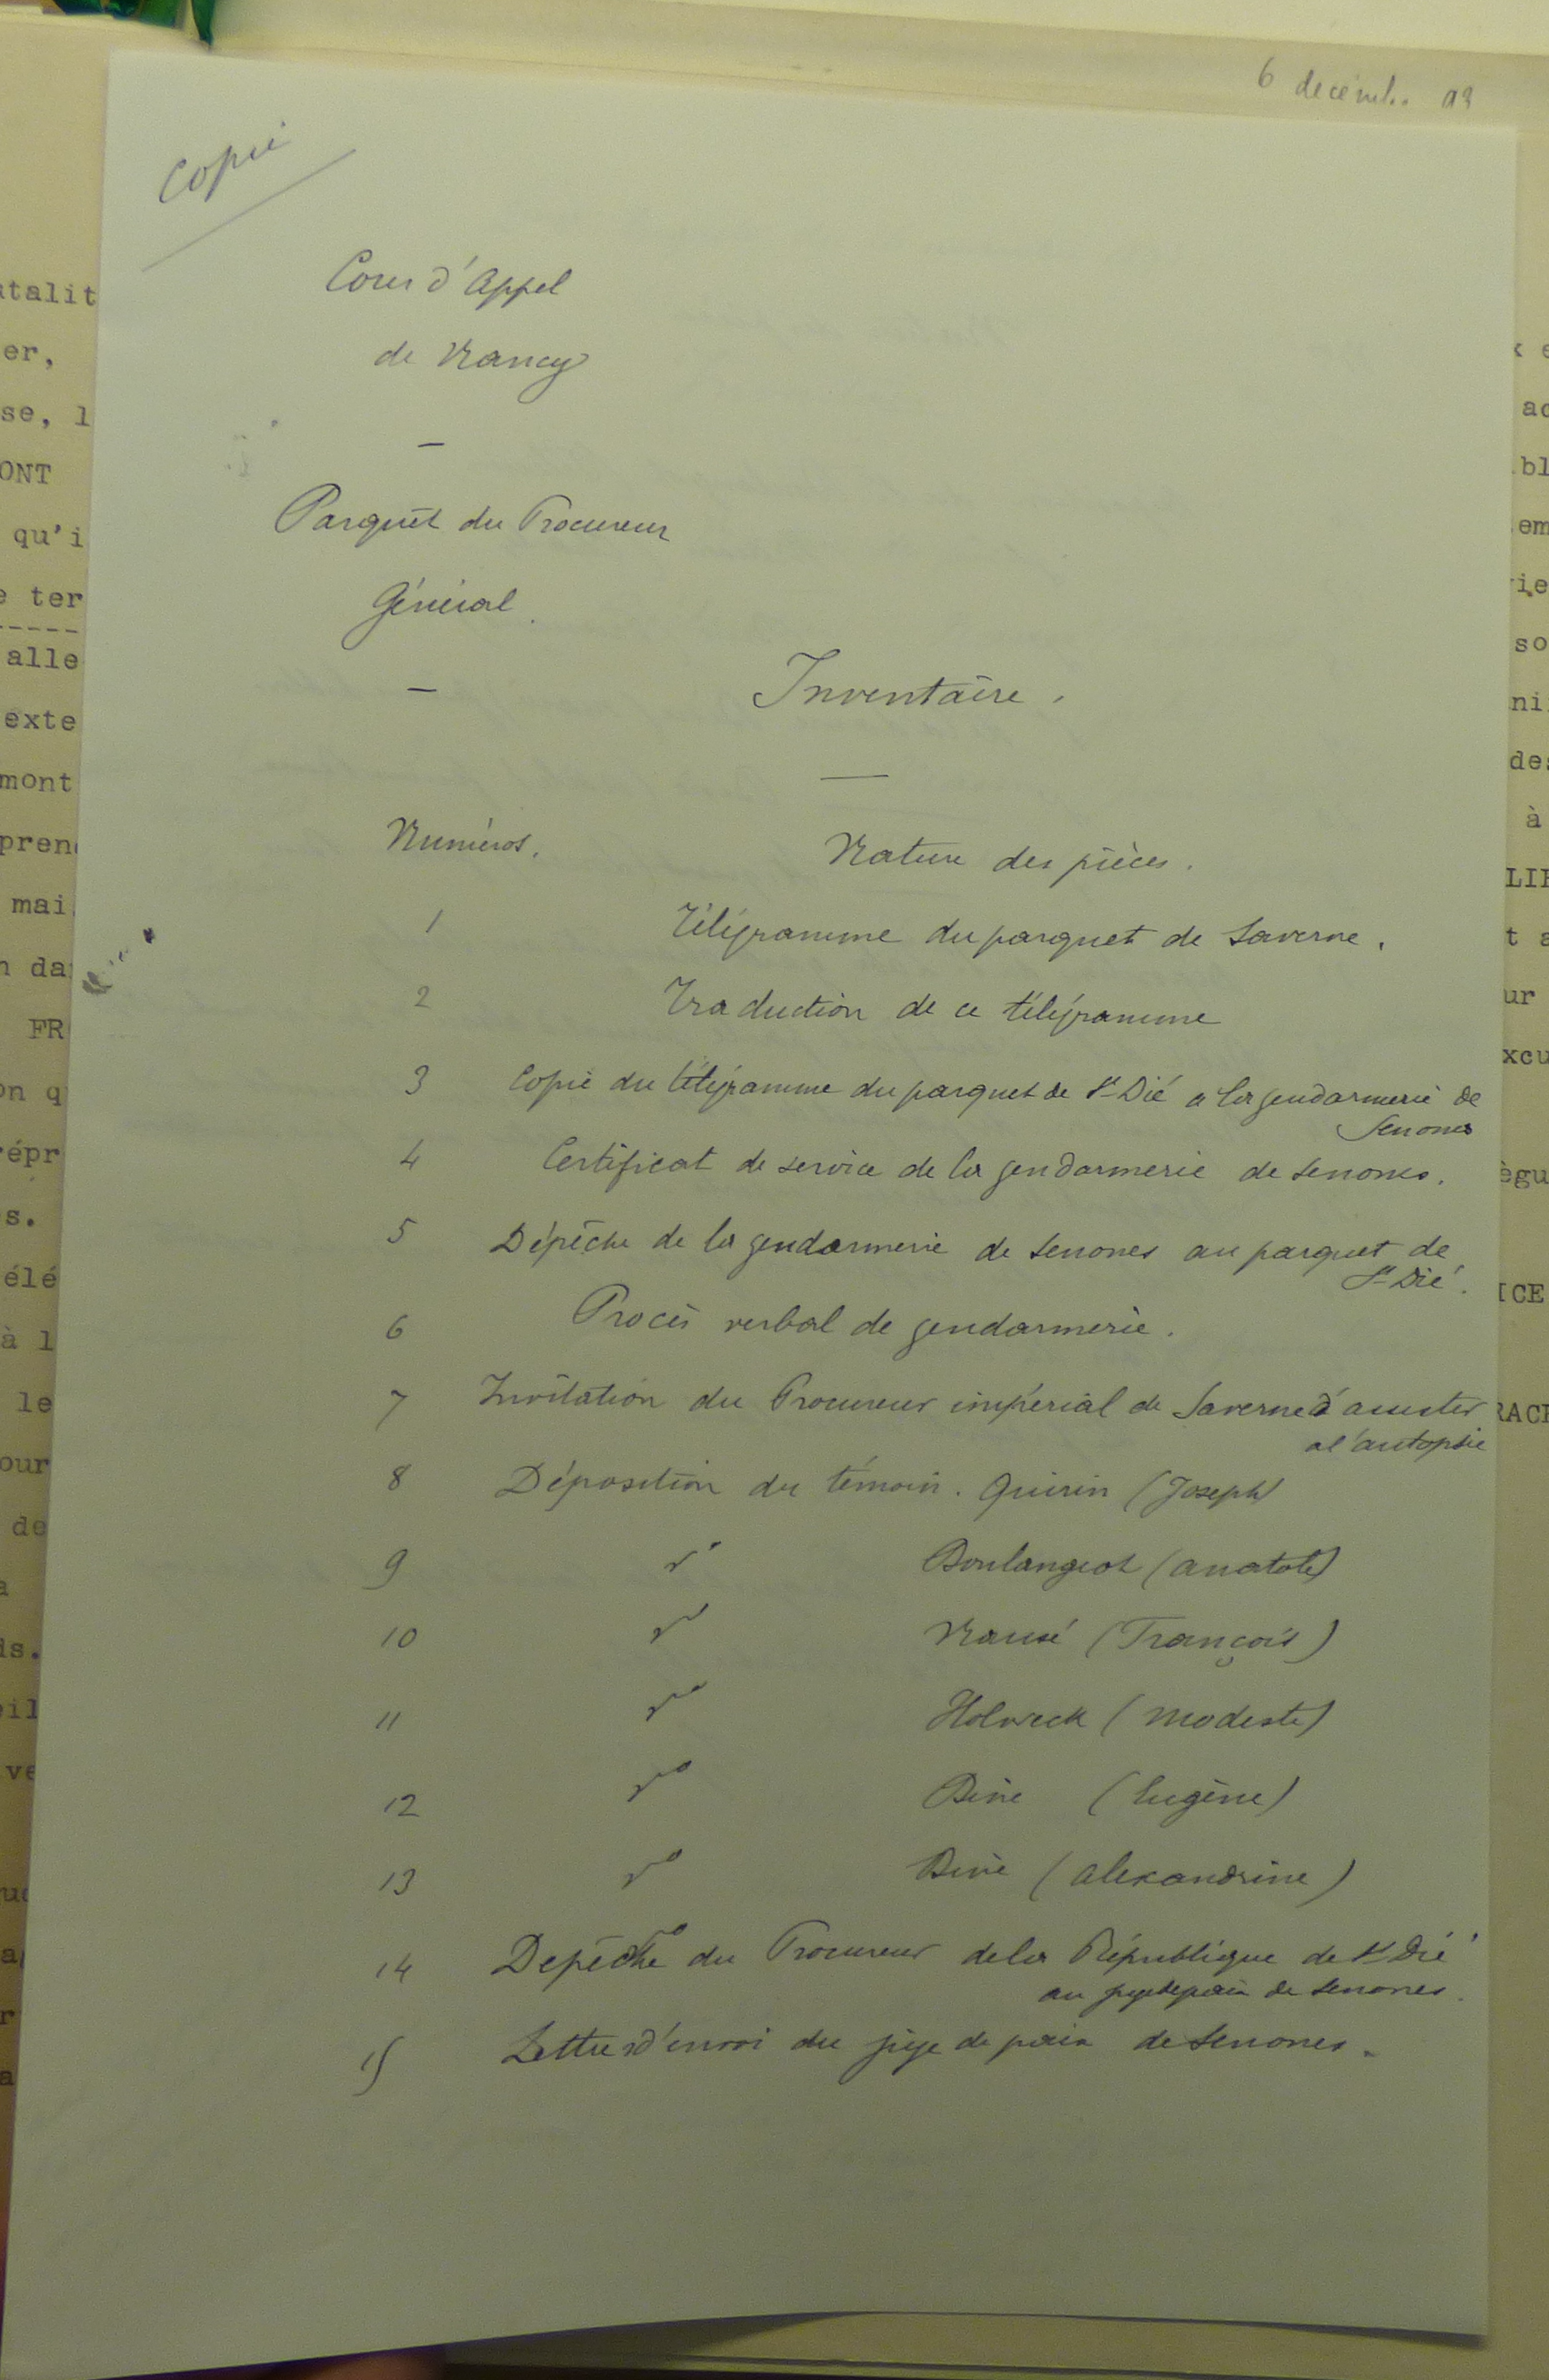 6 décembre 93
Copie
Cour d'Appel
de Nancy
—
Parquet du Procureur
Général.
—
Inventaire.
—
Numéros.
Nature des pièces.
1 Télégramme du parquet de Saverne.
2 Traduction de ce télégramme
3 Copie du télégramme du parquet de St Dié a la gendarmerie de
Senones
4 Certificat de service de la gendarmerie de Senones.
5 Dépêche de la gendarmerie de Senones au parquet de
St Dié.
6 Procès verbal de gendarmerie.
7 Invitation du Procureur impérial de Saverne d'assister
a l'autopsie
8 Déposition du témoin. Quirin (Joseph)
9 do Boulangeot (Anatole)
10 do (François)
11 do Holveck (Modeste)
12 do (Eugène)
13 do (Alexandrine)
14 Depêche du Procureur de la République de St Dié
au juge de paix de Senones.
15 Lettre d'envoi du juge de paix de Senones.
atalit
er,
se, l
ONT
qu'i
e ter
alle
exte
mont
pren
mai
n da
FR
on q
répr
s.
élé
à l
le
our
de
is.
eil
ve
ac
bl
em
so
ni
des
à
t a
ur
xcu
ègu
ICE